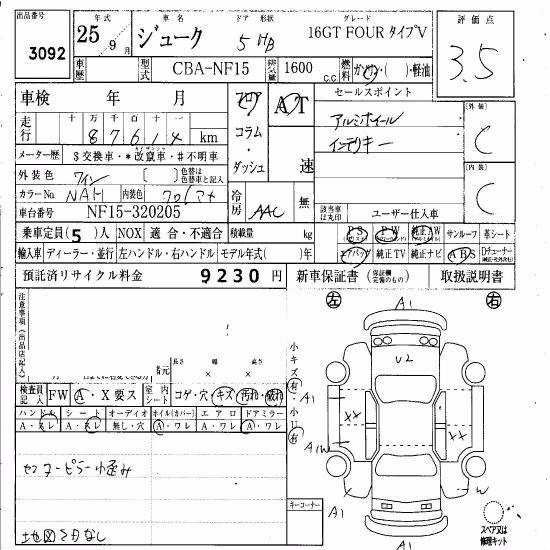 出品番号 年式 車名 ドア 形状 グレード 評価点
3092 25年 9月 ジューク 5 HB 16GT FOUR タイプV 3.5
車歴 型式 CBA-NF15 排気量 1600 c.c. 燃料 ガソリン・( )・軽油
車検 年 月 フロア AT セールスポイント
走行 十 万 千 百 十 一 コラム アルミホイール 外装 C
87614 km インテリキー
メーター歴 $交換車・*改竄車・#不明車 ダッシュ 速
外装色 ワイン [ ] 色替は色替車と記入 内装 C
カラーNo. NAH 内装色 冷房 AAC 無
車台番号 NF15-320205 該当車は丸印 ユーザー仕入車
乗車定員(5)人 NOX 適合・不適合 積載量 kg PS PW 純正AW サンルーフ 革シート
輸入車 ディーラー・並行 左ハンドル・右ハンドル モデル年式( )年 エアバッグ 純正TV 純正ナビ ABS Dチューナー
預託済リサイクル料金 9230円 新車保証書 (保証欄完備のもの) 取扱説明書
注意事項(出品店記入) 左 A1 右
長さ 幅 高さ 小キズ 有
× × U2
検査員記入 FW A・X要ス 室内シート コゲ・穴 キズ 汚れ・破れ A1
ハンドル シート オーディオ ホイル(カバー) エアロ ドアミラー 小U 有 XX XX
A・スレ A・スレ 無し・穴 A・ワレ A・ワレ A・ワレ
A1W
センターピラー小歪み
W
キーコーナー
地図SDなし A1 A1 スペア又は修理キット